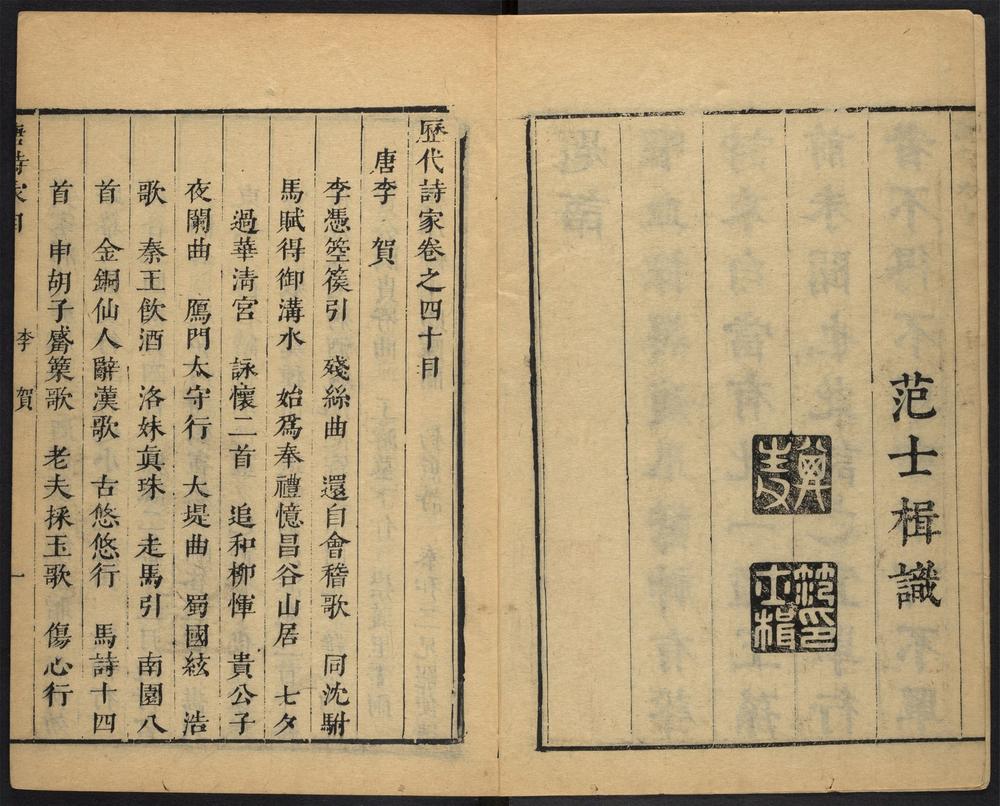 范士楫識
范印士楫
歷代詩家卷之四十目
唐李賀
李憑箜篌引 殘絲曲 還自會稽歌 同沈駙
馬賦得御溝水 始爲奉禮憶昌谷山居 七夕
過華清宮 詠懷二首 追和柳惲 貴公子
夜闌曲 鴈門太守行 大堤曲 蜀國絃 浩
歌 秦王飲酒 洛姝眞珠 走馬引 南園八
首 金銅仙人辭漢歌 古悠悠行 馬詩十四
首 申胡子觱篥歌 老夫採玉歌 傷心行
李賀 一